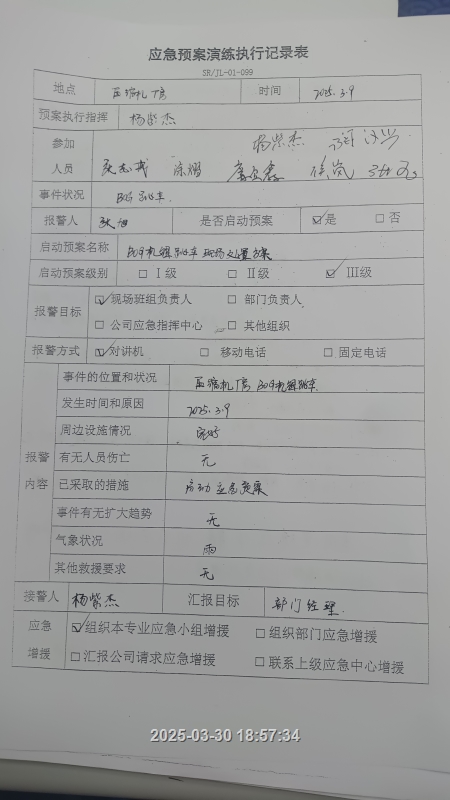 应急预案演练执行记录表
SR/JL-01-099
地点 压缩机厂房 时间 2025.3.9
预案执行指挥 杨紫杰
参加人员 杨紫杰
事件状况 跳车
报警人 是否启动预案 ☑是 □否
启动预案名称 机组跳车现场处置方案
启动预案级别 □Ⅰ级 □Ⅱ级 ☑Ⅲ级
报警目标 ☑现场班组负责人 □部门负责人
□公司应急指挥中心 □其他组织
报警方式 ☑对讲机 □移动电话 □固定电话
报警内容
事件的位置和状况 压缩机厂房 机组跳车
发生时间和原因 2025.3.9
周边设施情况 完好
有无人员伤亡 无
已采取的措施 启动应急预案
事件有无扩大趋势 无
气象状况 雨
其他救援要求 无
接警人 杨紫杰 汇报目标 部门经理
应急增援 ☑组织本专业应急小组增援 □组织部门应急增援
□汇报公司请求应急增援 □联系上级应急中心增援
2025-03-30 18:57:34